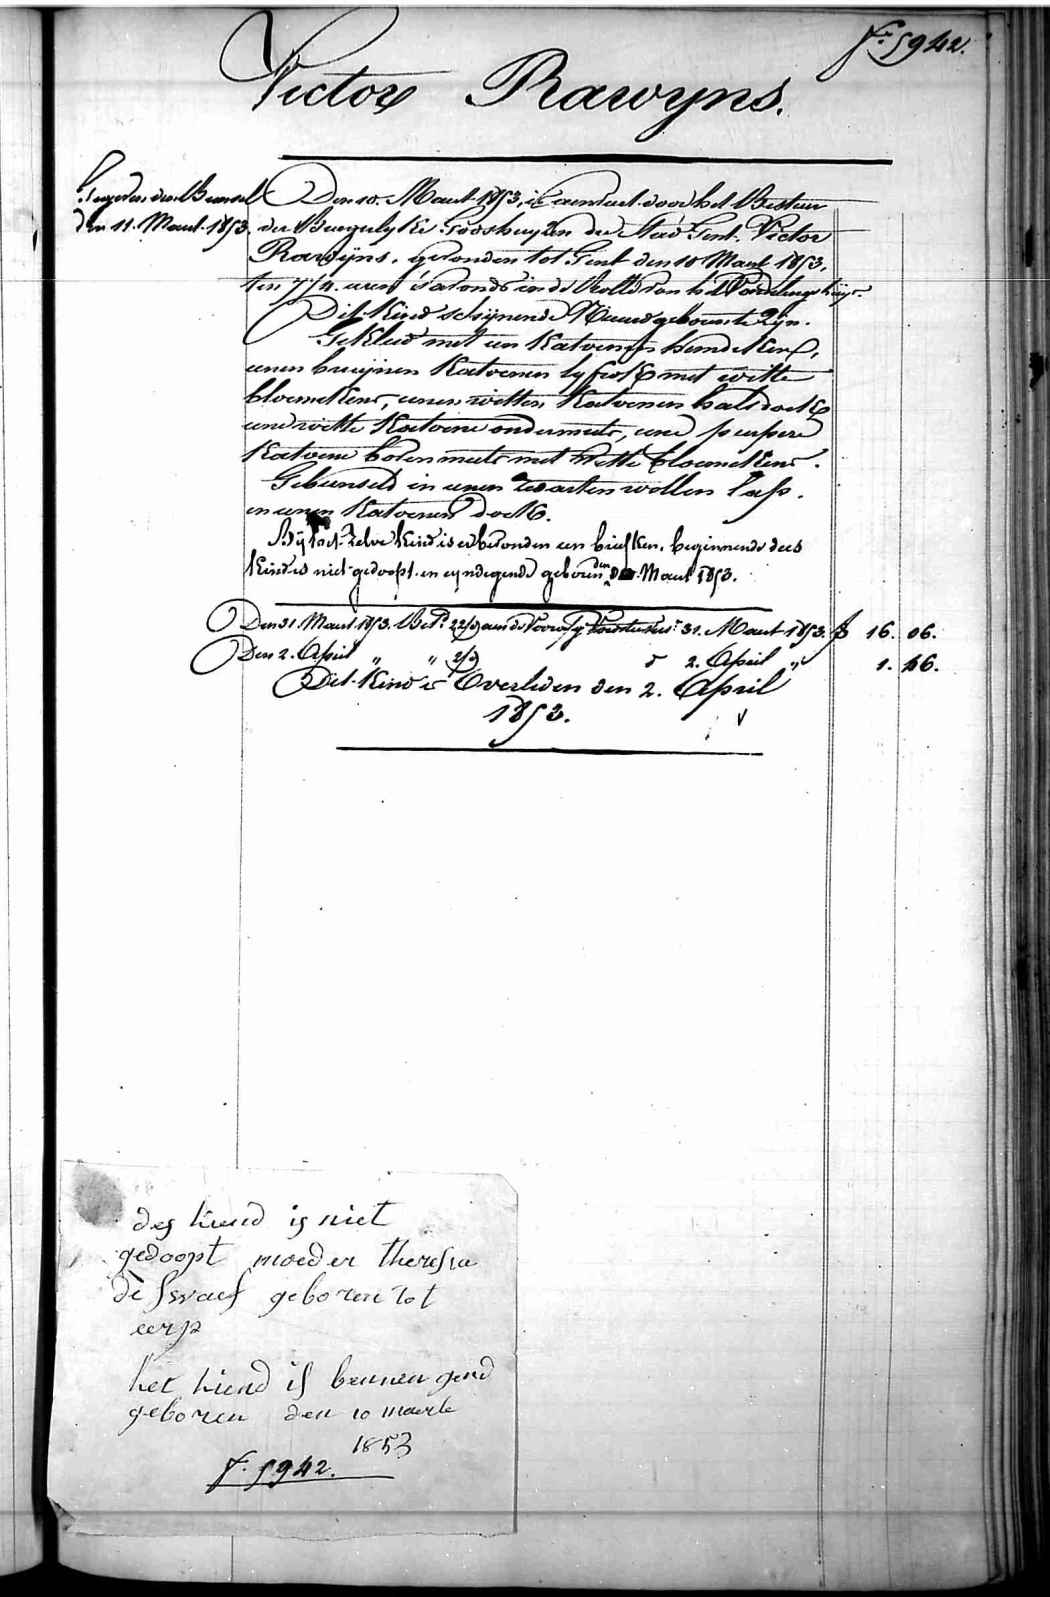 f.° 5942.
Victor Rawyns.
den 11. Maart 1853.
Den 10. Maart 1853, is aenvaert door het Bestuer
der Burgerlyke Godshuyzen der Stad Gent. Victor
Rawÿns, gevonden tot Gent den 10 Maart 1853,
ten 7 1/4 uren 's avonds in de Rolle van het Vondelingshuys.
Dit Kind schynende Nieuwgeboren te Zÿn.
Gekleed met een Katoenen hemdeken,
eenen bruÿnen Katoenen lyfrok met witte
bloemekens, eenen witten Katoenen halsdoek
eene witte Katoene ondermuts, eene purpere
Katoene bovenmuts met witte bloemekens.
Gebunseld in eenen zwarten wollen lap.
en eenen Katoenen doek.
Bÿ het zelve Kind is er bevonden een briefken, beginnende dees
Kind is niet gedoopt en eyndegende geboren den Maart 1853.
Den 31. Maart 1853. Bet.d 22/d aen de Voorz. 31. Maart 1853. f 16. 06.
Den 2. April " " 2/d d° 2. April " 1. 46.
Dit Kind is Overleden den 2. April
1853.
des kiend is niet
gedoopt moeder theresia
de geboren tot
eerp
het kiend is bennen gend
geboren den 10 maerte
1853
f. 5942.